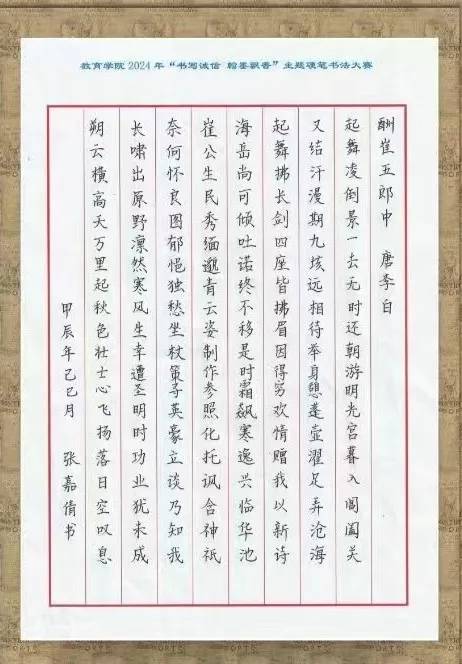 教育学院2024年“书写诚信 翰墨飘香”主题硬笔书法大赛
酬崔五郎中 唐李白
起舞凌倒景一去无时还朝游明光宫暮入阊阖关
又结汗漫期九垓远相待举身憩蓬壶濯足弄沧海
起舞拂长剑四座皆拂眉因得穷欢情赠我以新诗
海岳尚可倾吐诺终不移是时霜飙寒逸兴临华池
崔公生民秀缅邈青云姿制作参照化托讽含神祇
奈何怀良图郁悒独愁坐杖策寻英豪立谈乃知我
长啸出原野凛然寒风生幸遭圣明时功业犹未成
朔云横高天万里起秋色壮士心飞扬落日空叹息
甲辰年己巳月 张嘉倩书